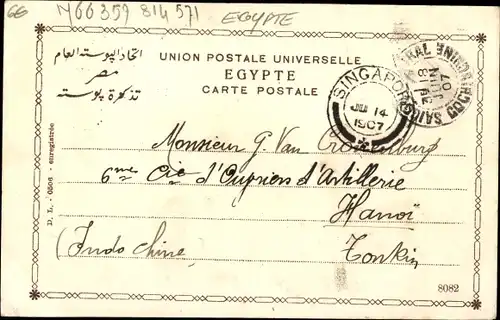 66 N66359 814 571 EGYPTE
اتحاد البوستة العام
مصر
تذكرة بوسته
UNION POSTALE UNIVERSELLE
EGYPTE
CARTE POSTALE
SINGAPORE
JU 14
1907
SAIGON CENTRAL COCHINCHINE
18
JUIN
07
Monsieur G. Van
6me Cie d'Ouvriers d'Artillerie
Hanoï
(Indo Chine) Tonkin
D. L. - 0506 - enregistrée
8082